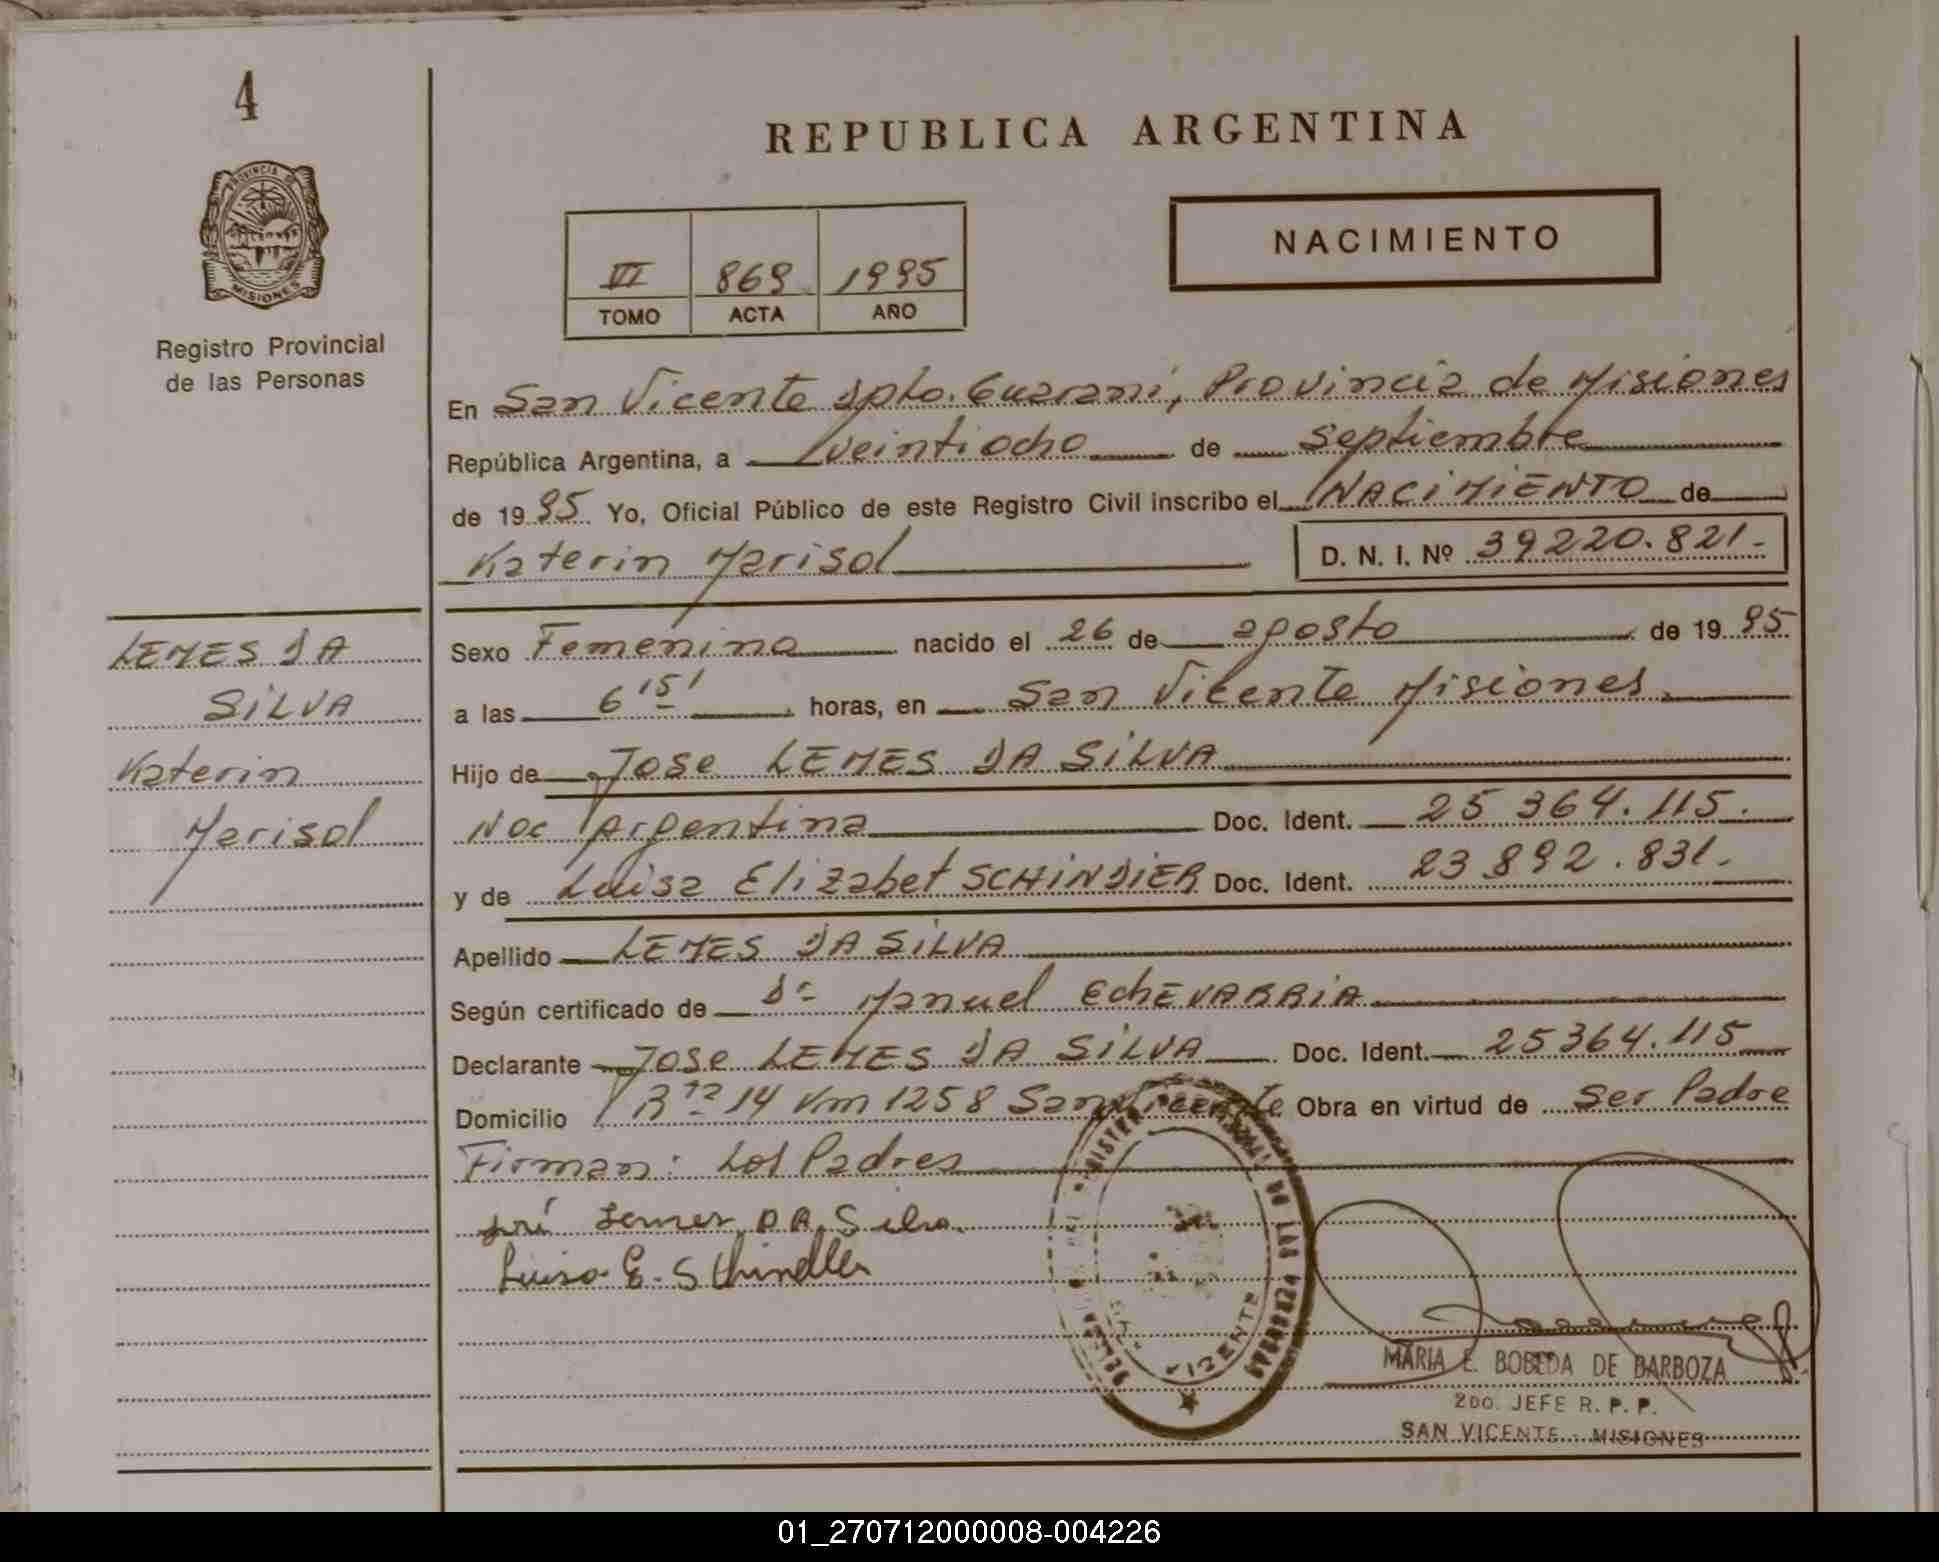 4
REPUBLICA ARGENTINA
PROVINCIA DE
MISIONES
Registro Provincial
de las Personas
NACIMIENTO
VI 869 1995
TOMO ACTA AÑO
En San Vicente Dpto. Guarani, Provincia de Misiones
República Argentina, a veintiocho de septiembre
de 1995 Yo, Oficial Público de este Registro Civil inscribo el NACIMIENTO de
Katerin Marisol D. N. I. Nº 39220.821.-
LEMES DA
SILVA
Katerin
Marisol
Sexo Femenino nacido el 26 de agosto de 1995
a las 6 15' horas, en San Vicente Misiones
Hijo de Jose LEMES DA SILVA
Nac Argentina Doc. Ident. 25 364.115.
y de Luisa Elizabet SCHINDLER Doc. Ident. 23.892.831.
Apellido LEMES DA SILVA
Según certificado de Dr Manuel EchEVARRIA
Declarante Jose LEMES DA SILVA Doc. Ident. 25364.115
Domicilio Rta 14 Km 1258 San Vicente Obra en virtud de Ser Padre
Firman: Los Padres
José Lemes DA Silva
Luisa E. Schindler
DE LAS PERSONAS
VICENTE
MARIA E. BOBEDA DE BARBOZA
2DO. JEFE R. P. P.
SAN VICENTE - MISIONES
01_270712000008-004226